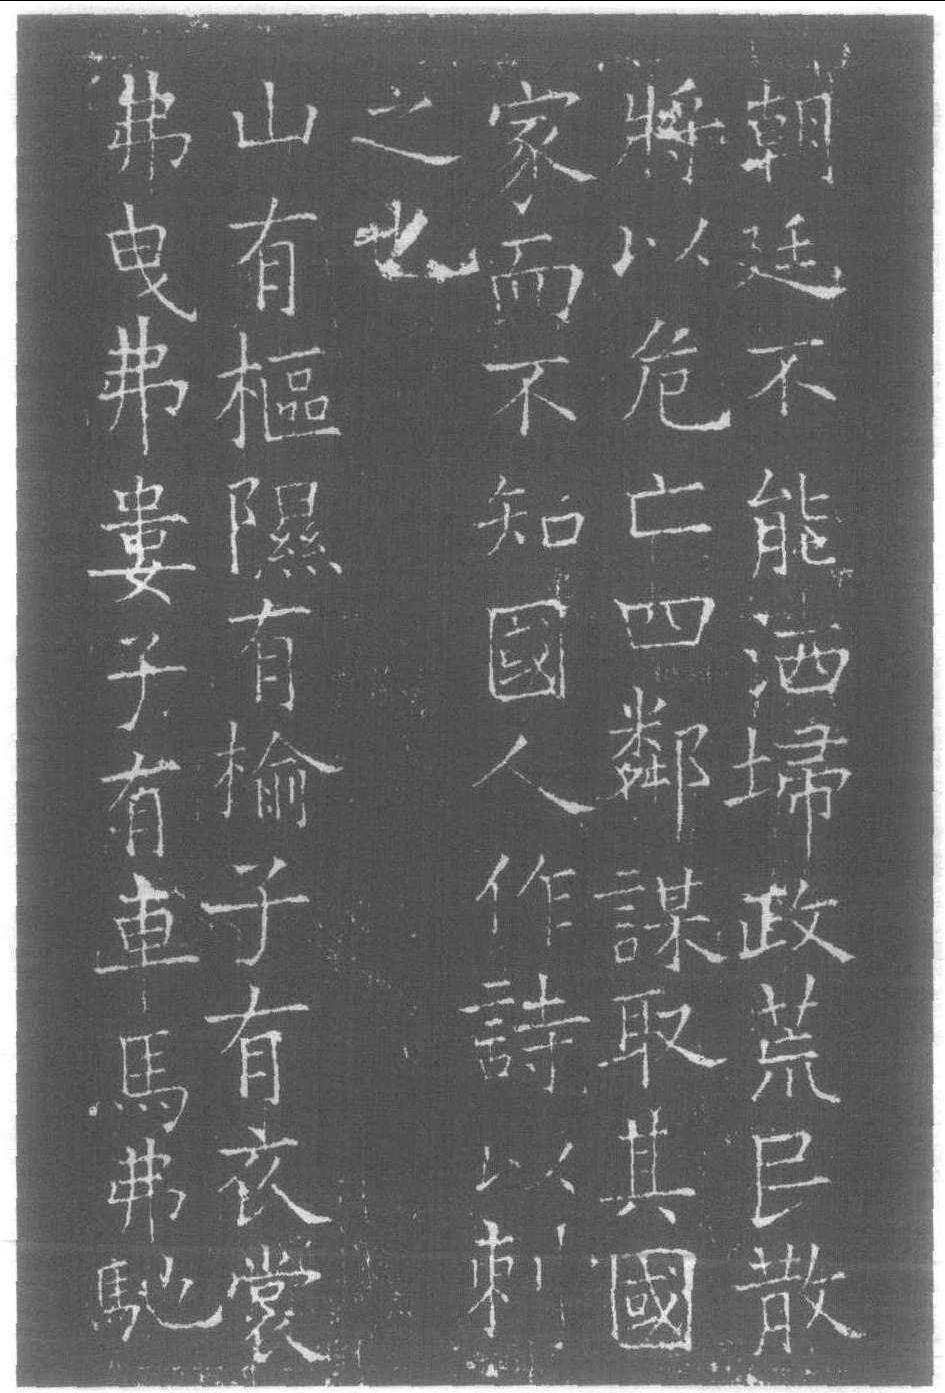 朝廷不能洒埽政荒民散
將以危亡四鄰謀取其國
家而不知國人作詩以刺
之也
山有樞隰有榆子有衣裳
弗曳弗婁子有車馬弗馳